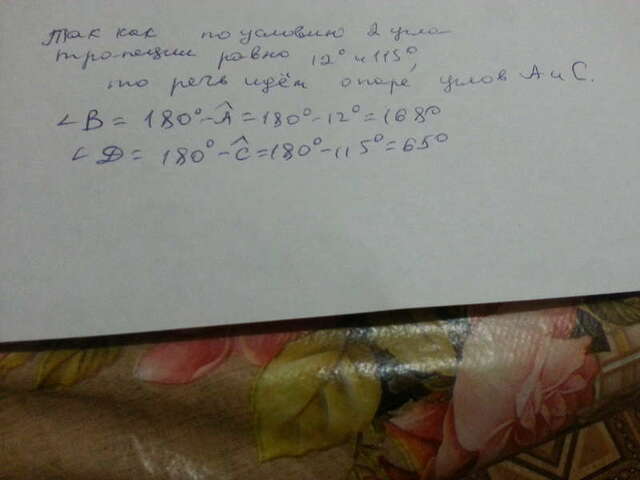 Так как по условию 2 угла
трапеции равно 12° и 115°,
то речь идём о паре углов A и C.
∠B = 180° - Â = 180° - 12° = 168°
∠D = 180° - Ĉ = 180° - 115° = 65°